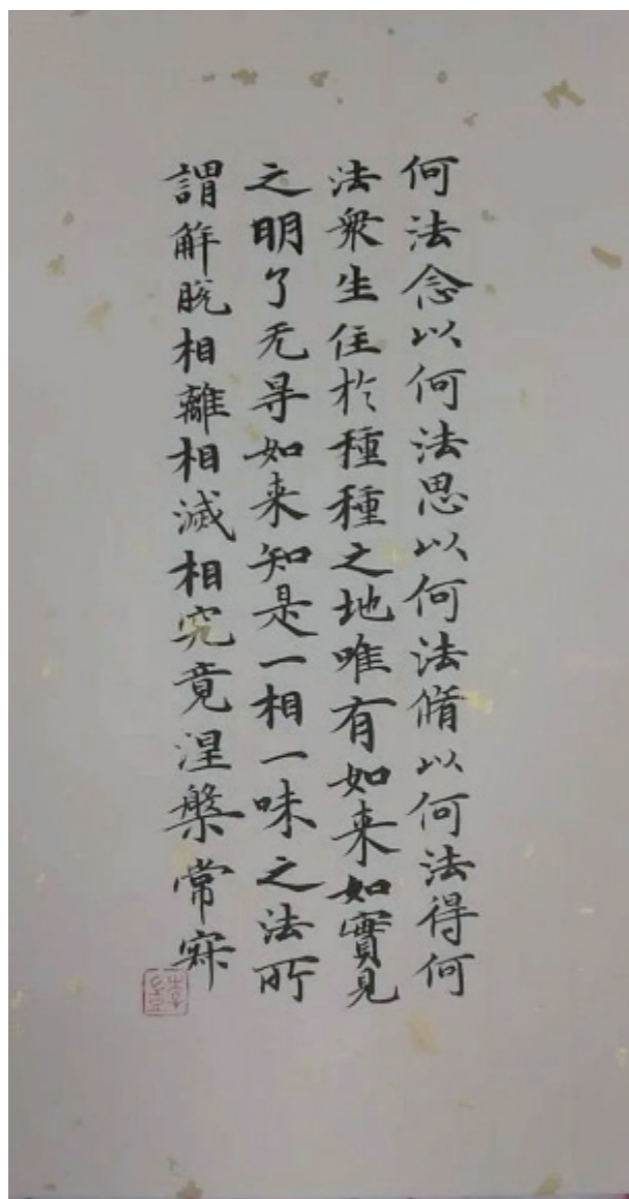 何法念以何法思以何法脩以何法得何
法衆生住於種種之地唯有如来如實見
之明了无㝵如来知是一相一味之法所
謂解脱相離相滅相究竟涅槃常寂